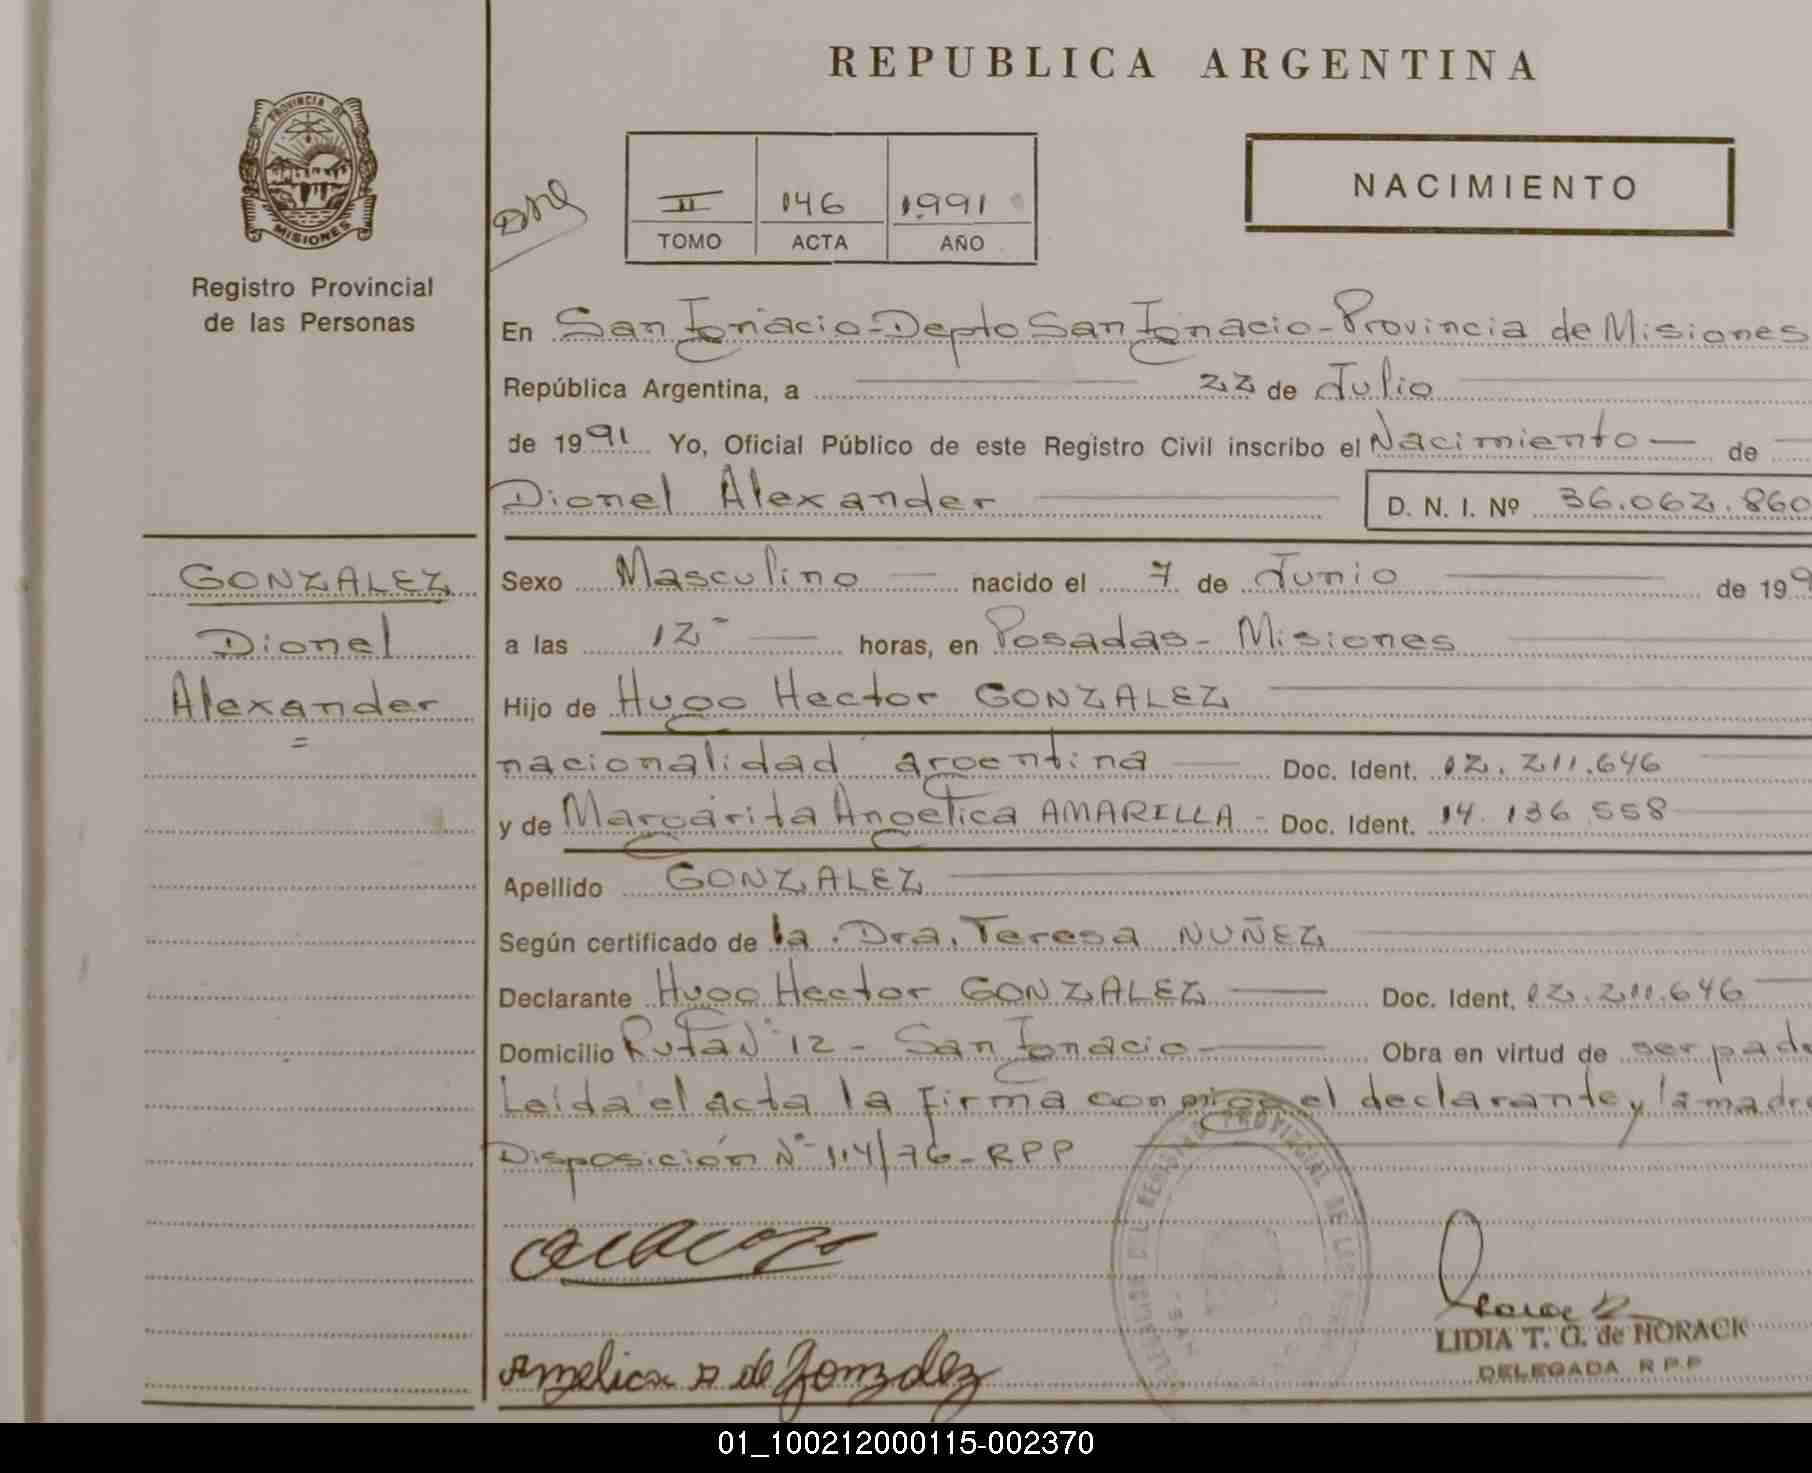 REPUBLICA ARGENTINA
PROVINCIA DE
MISIONES
Registro Provincial
de las Personas
II 146 1991
TOMO ACTA AÑO
NACIMIENTO
En San Ignacio - Depto San Ignacio - Provincia de Misiones
República Argentina, a 22 de Julio
de 1991 Yo, Oficial Público de este Registro Civil inscribo el Nacimiento de
Dionel Alexander D. N. I. Nº 36.062.860
GONZALEZ
Dionel
Alexander
Sexo Masculino nacido el 7 de Junio de 199
a las 12 horas, en Posadas - Misiones
Hijo de Hugo Hector GONZALEZ
nacionalidad argentina Doc. Ident. 12.211.646
y de Margarita Angelica AMARILLA - Doc. Ident. 14.136.558
Apellido GONZALEZ
Según certificado de la Dra. Teresa NUÑEZ
Declarante Hugo Hector GONZALEZ Doc. Ident. 12.211.646
Domicilio Ruta Nº 12 - San Ignacio Obra en virtud de ser padre
Leída el acta la firma conmigo el declarante y la madre
Disposición Nº 114/76 - RPP
Angelica A de Gonzalez
LIDIA T. G. de HORACK
DELEGADA R P P
01_100212000115-002370